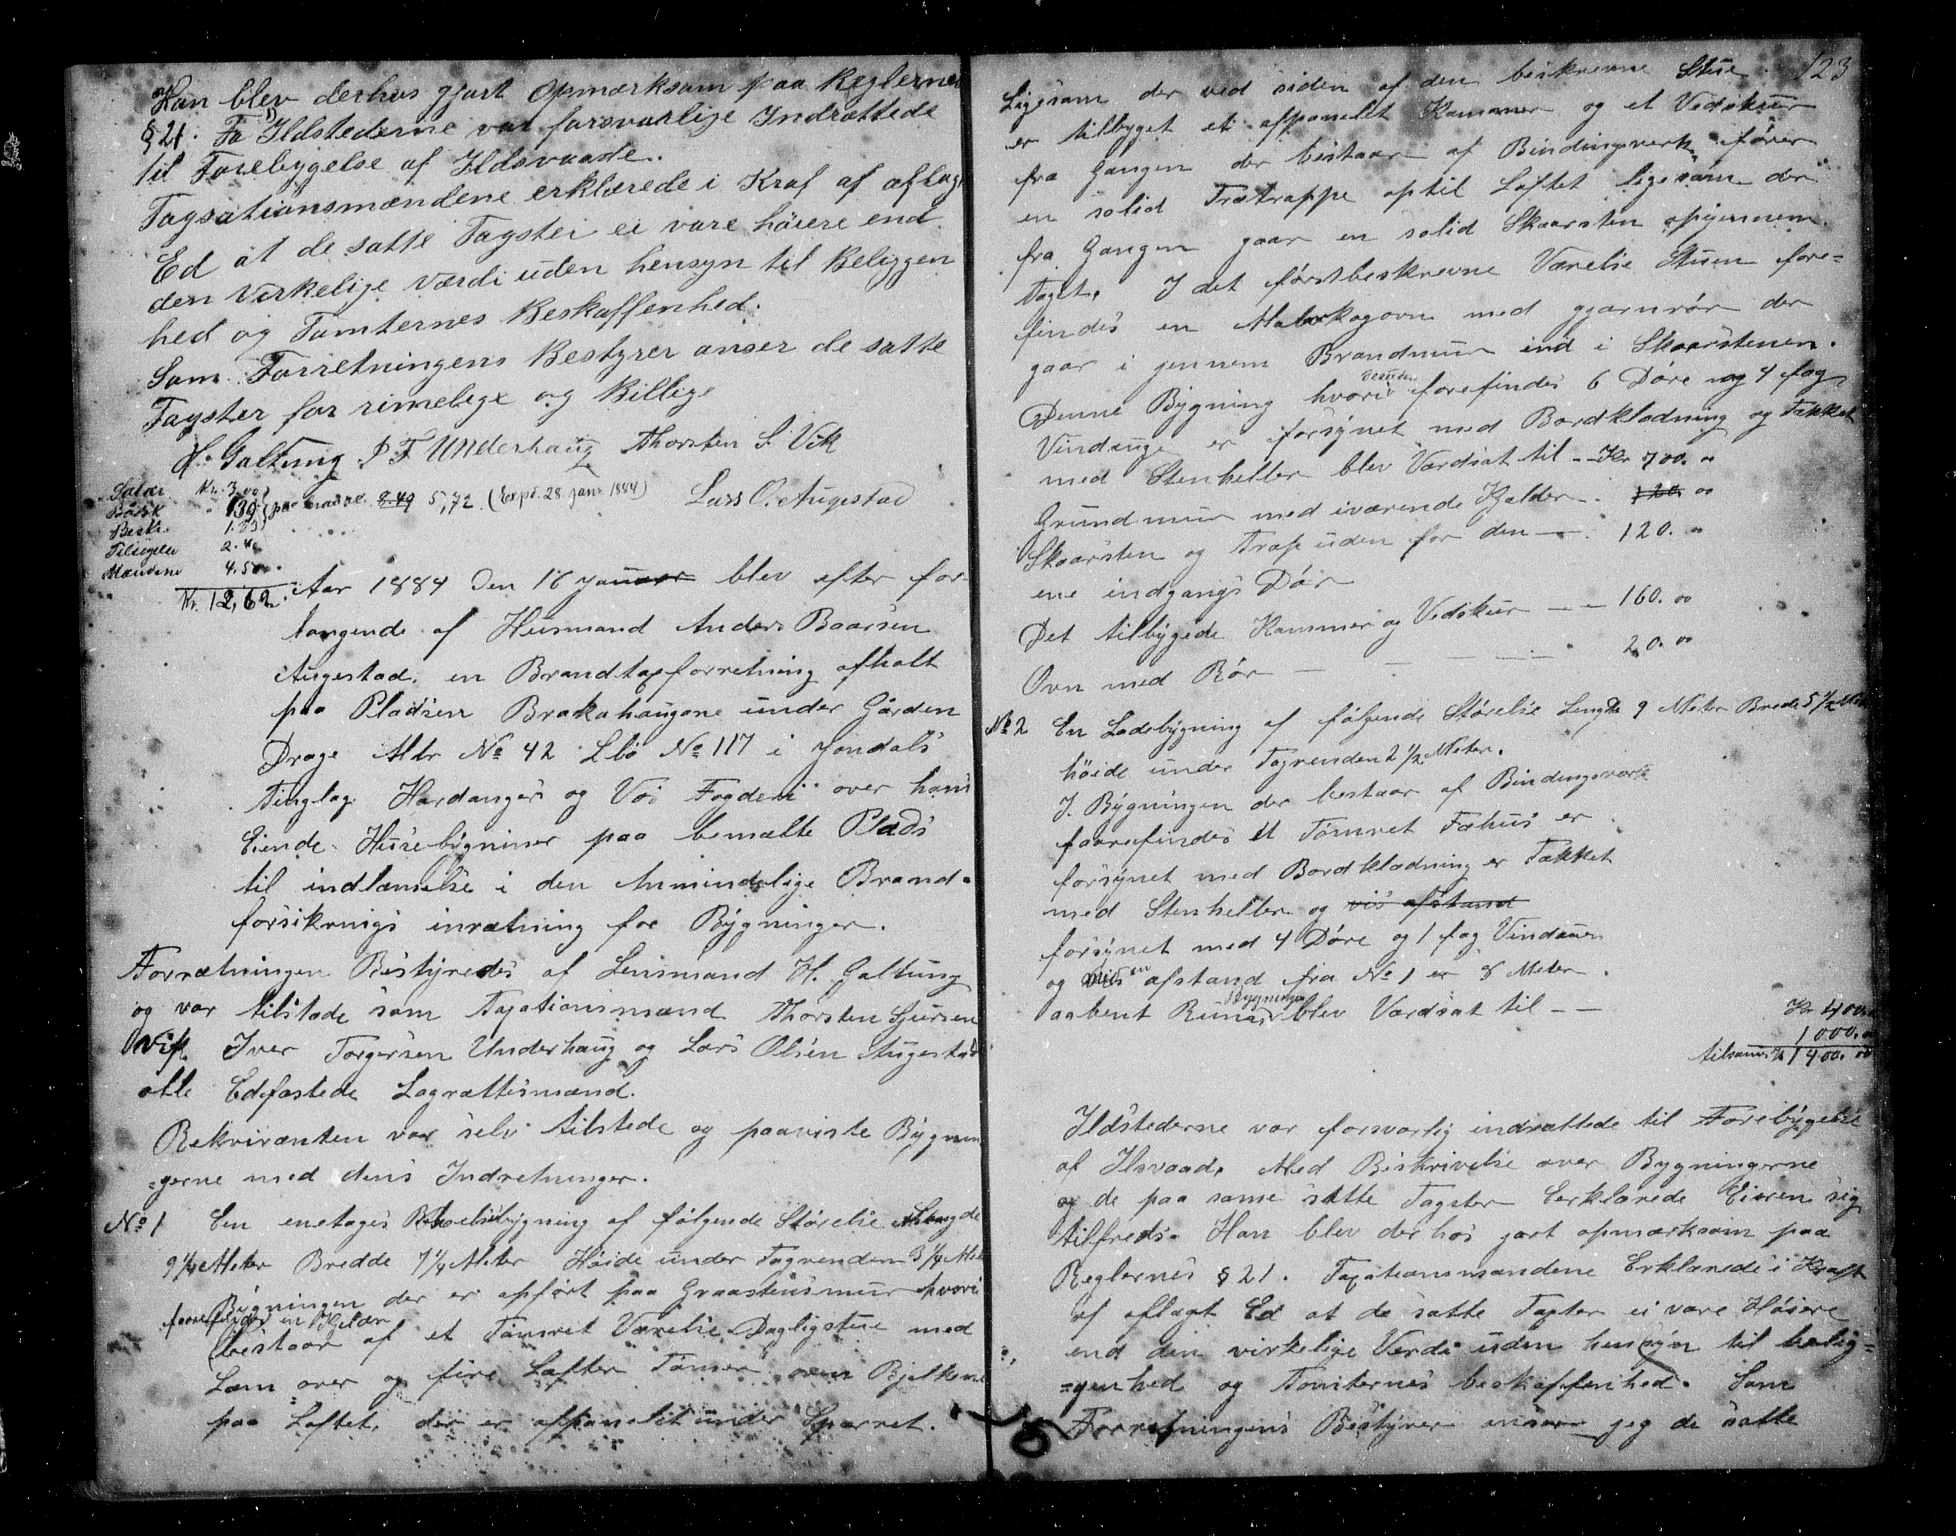 Han blev derhos gjort Opmærksom paa Reglernes
§ 21. Ildstederne var forsvarlige Indrættede
til Forebyggelse af Ildsvaade.
Taxsationsmændene erklærede i Kraf af aflagt
Ed at de satte Taxster ei vare höiere end
den virkelige Værdi uden hensyn til Beliggen
hed og Tomternes Beskaffenhed.
Som Forretningens Bestyrer anser de satte
Taxster for rimelige og Billige
H. Galtung I T Underhaug Thorsten S. Vik
Lars O. Augestad
Salær Kr. 3,00
5,72. (Exp. 28 Janr 1884)
Beskr. 1.33
Tilsigelse 2.40
Mændene 4.50
Kr. 12,62.
Aar 1884 Den 16 Januar blev efter for
langende af Husmand Anders Baarsen
Augestad. en Brandtaxforretning afholt
paa Pladsen Brakahaugane under Gården
Drage Mtr No 42 Lbö No 117 i Jondals
Tinglag Hardanger og Vos Fogderi over hans
Eiende Husebygniner paa bemælte Plads
til indlæmelse i den Almindelige Brand-
forsikrings inrætning for Bygninger.
Forrætningen Bestyredes af Lensmand H. Galtung
og var tilstæde som Taxationsmænd Thorsten Sjursen
Vik, Iver Torgersen Underhaug og Lars Olsen Augestad
alle Edfæstede Lagrættesmænd.
Rekvirænten var selv tilstede og paaviste Bygnin
=gerne med dens Indretninger.
No 1 En enetages Beboelsebygning af følgende Störelse Længde
9 1/4 Meter Bredde 7 1/4 Meter Höide under Tagrenden 3 1/4 Met
Bygningen der er opfört paa Graastensmur hvori
foorefindes en Kjelder
bestaar af et Tömret Værelse Dagligstue med
Læm over og fire Lafter Tömer oven Bjelkerne
paa Loftet, der er oppanelet under Sparret.
123
Ligesom der ved siden af den beskrevne Stue
er tilbyget et oppanelet Kammer og et Vedskuur
fra Gangen der bestaar af Bindingsverk förer
en solid Trætrappe optil Loftet ligesom der
fra Gangen gaar en solid Skaarsten opgjennem
Taget. I det förstbeskrevne Værelse Stuen fore=
findes en Kagovn med gjærnrör der
gaar i jennem Brandmur ind i Skaarstenen.
Denne Bygning hvori desuden forefindes 6 Döre og 4 fag
Vinduge er forsynet med Bordklædning og Tækket
med Stenheller blev Værdsat til -- Kr 700. 00
Grundmur med iværende Kjelder -- 120. 00
Skaarsten og Trap uden for den -- 120. 00
ene indgangs Dör
Det tilbygede Kammer og Vedskur -- 160. 00
Ovn med Rör -- 20. 00
No 2 En Ladebygning af fölgende Störelse Længde 9 Meter Brede 5 1/2 Met
höide under Tagrenden 2 1/2 Meter.
I. Bygningen der bestaar af Bindingsværk
foorefindes et Tömret Fæhus er
forsynet med Bordklædning er Tækket
med Stenheller og vis afstand
forsynet med 4 Döre og 1 fag Vinduer
og afstand fra No 1 er 8 Meter.
aabent Rum Bygningen blev Værdsat til -- Kr 400.
1000. 00
tilsammen 1400. 00
Ildstederne var forsvarlig indrættede til Forebygelse
af Ilsvaad. Med Beskrivelse over Bygningerne
og de paa same satte Taxster Eerklærede Eieren sig
tilfreds. Han blev derhos gort opmærksom paa
Reglernes § 21. Taxationsmændene Erklærede i Kraft
af aflagt Ed at de satte Taxter ei vare Höiere
end den virkelige Verdi uden hensyn til belig=
=genhed og Tomternes beskaffenhed. Som
Forretningens Bestyrer anser jeg de satte